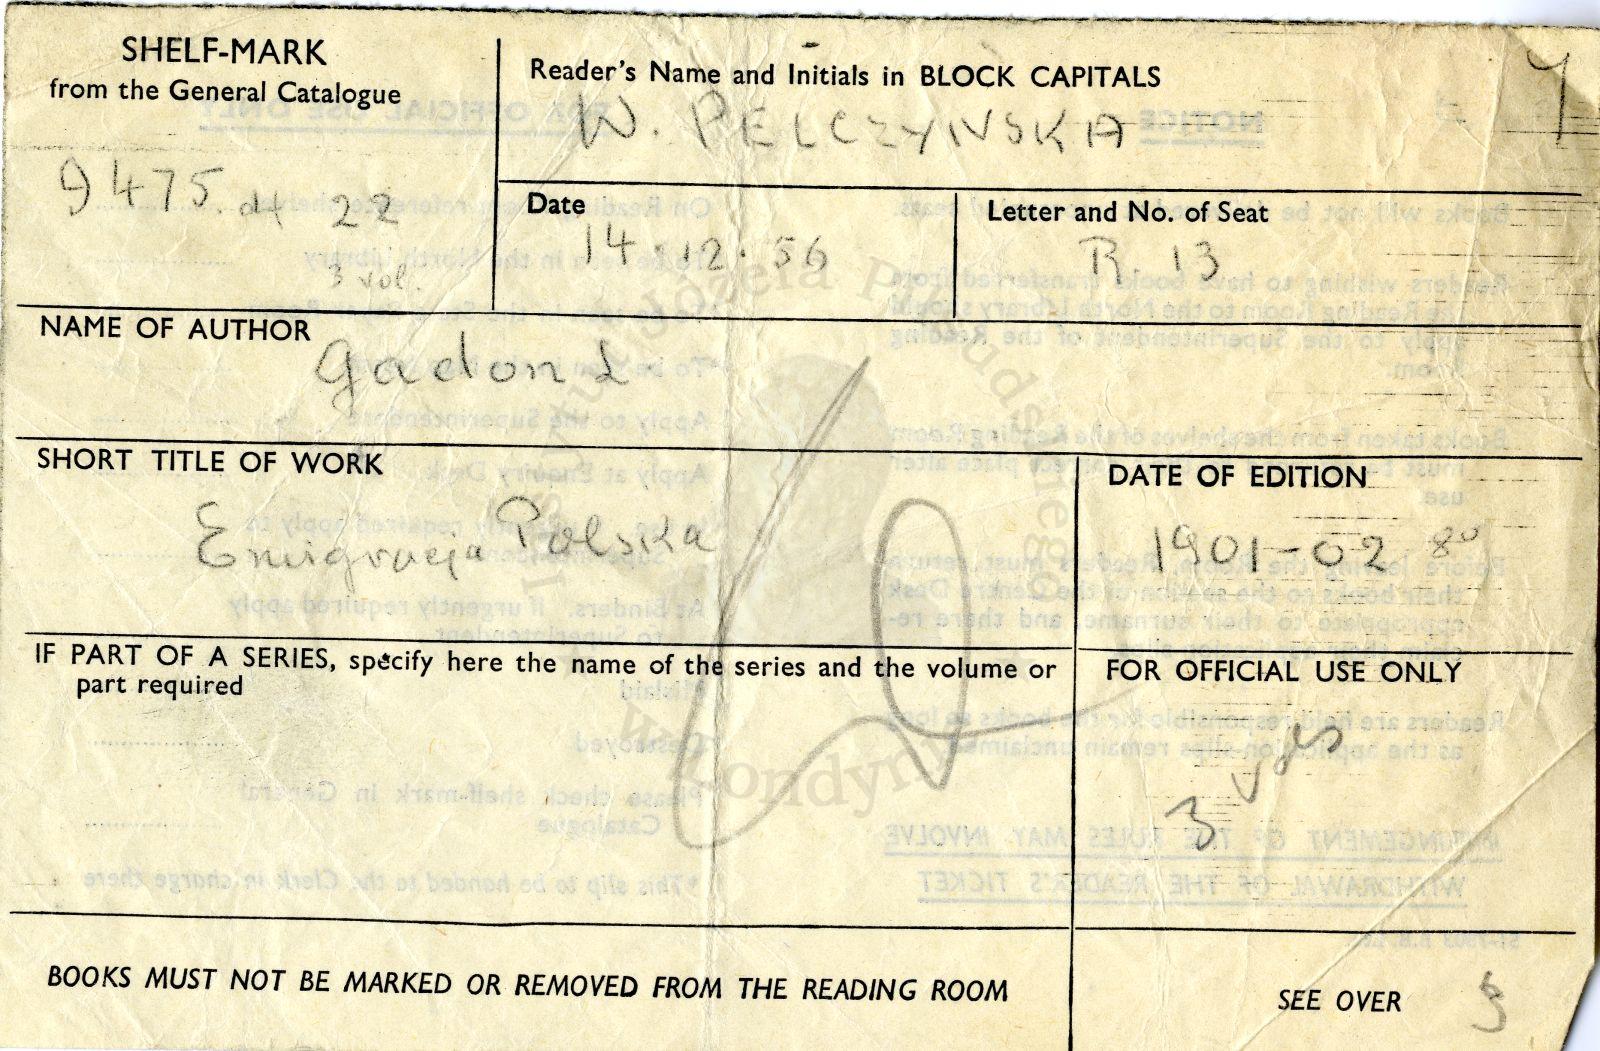 SHELF-MARK
from the General Catalogue
9475. d4 22
3 vol.
Reader's Name and Initials in BLOCK CAPITALS
W. PELCZYNSKA
Y
Date
14.12.56
Letter and No. of Seat
R 13
NAME OF AUTHOR
Gadon L
SHORT TITLE OF WORK
Emigracja Polska
DATE OF EDITION
1901-02 8º
IF PART OF A SERIES, specify here the name of the series and the volume or
part required
FOR OFFICIAL USE ONLY
3 vols
BOOKS MUST NOT BE MARKED OR REMOVED FROM THE READING ROOM
SEE OVER
5
Józefa Piłsudskiego
w Londynie